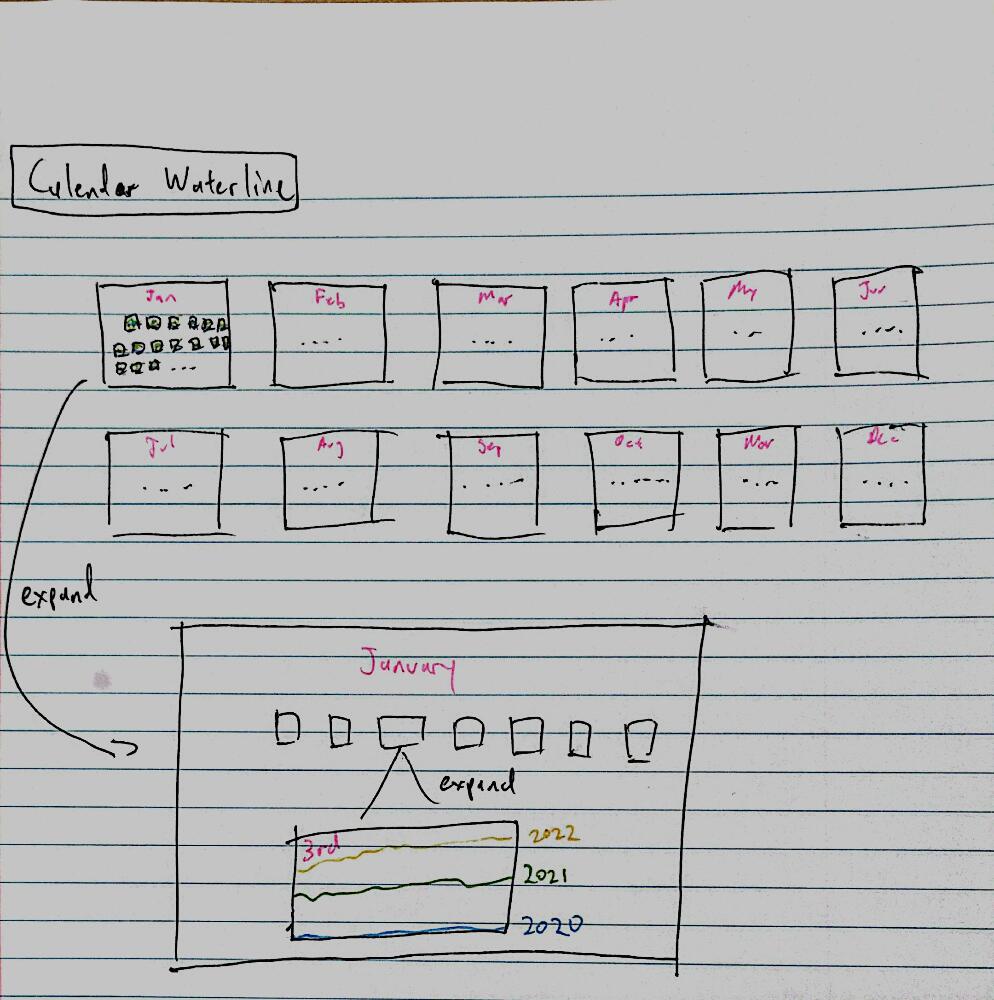 Calendar Waterline
Jan Feb Mar Apr May Jun
.... .... ... ... ....
...
Jul Aug Sep Oct Nov Dec
.... .... ..... ...... .... ....
expand
January
expand
3rd
2022
2021
2020